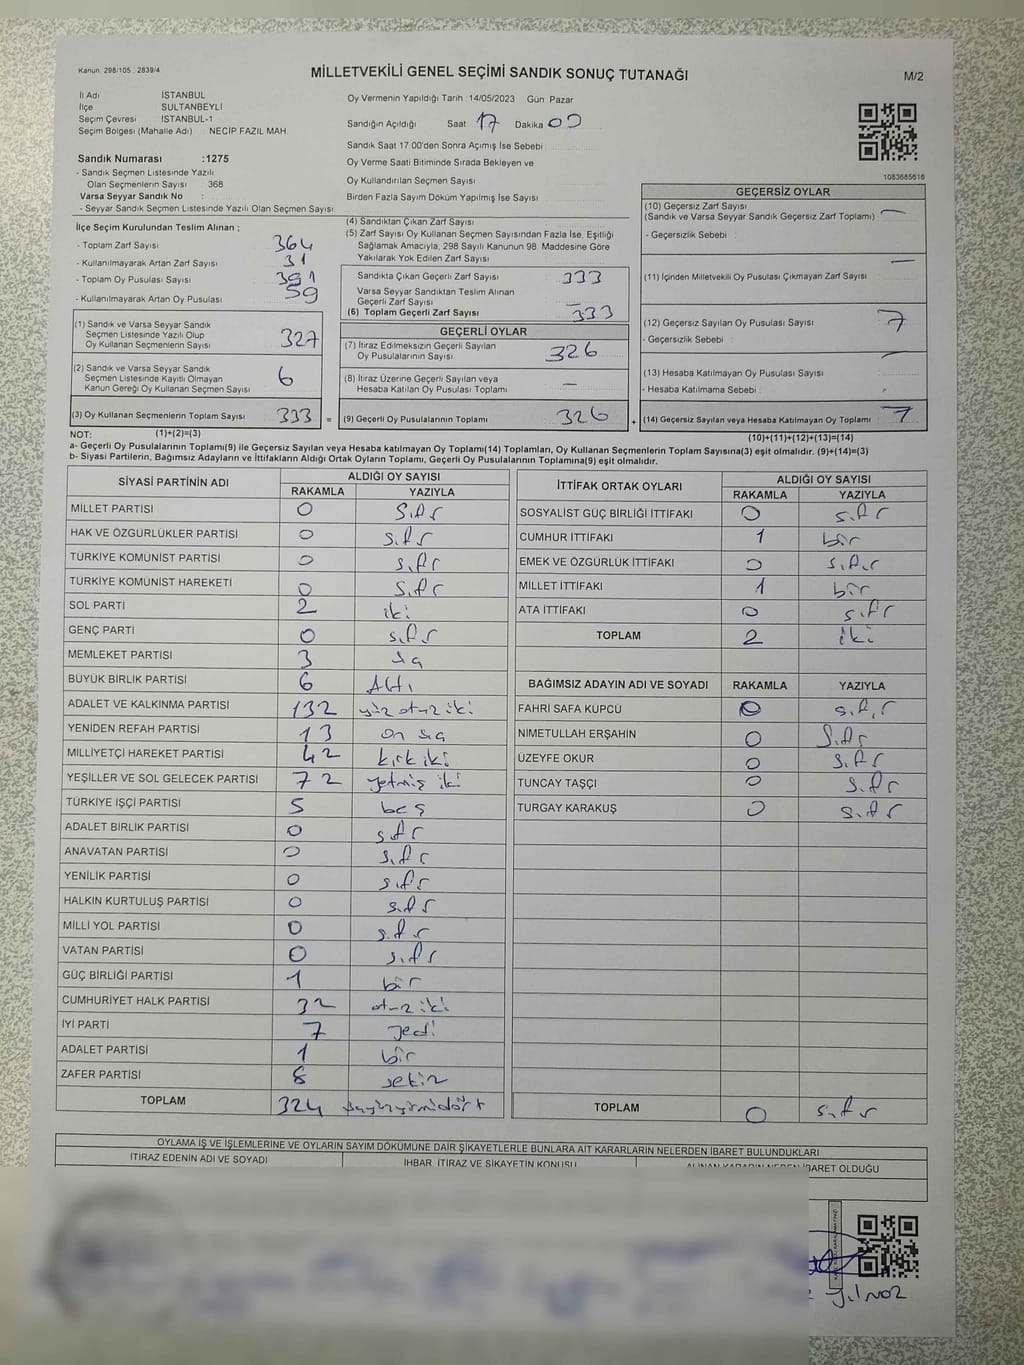 Kanun. 298/105 . 2839/4
MİLLETVEKİLİ GENEL SEÇİMİ SANDIK SONUÇ TUTANAĞI
M/2
İl Adı İSTANBUL
İlçe SULTANBEYLİ
Seçim Çevresi İSTANBUL-1
Seçim Bölgesi (Mahalle Adı) : NECİP FAZIL MAH.
Sandık Numarası :1275
- Sandık Seçmen Listesinde Yazılı
Olan Seçmenlerin Sayısı 368
Varsa Seyyar Sandık No :
- Seyyar Sandık Seçmen Listesinde Yazılı Olan Seçmen Sayısı
Oy Vermenin Yapıldığı Tarih :14/05/2023 Gün: Pazar
Sandığın Açıldığı Saat 17 Dakika 00
Sandık Saat 17:00'den Sonra Açımış İse Sebebi
Oy Verme Saati Bitiminde Sırada Bekleyen ve
Oy Kullandırılan Seçmen Sayısı
Birden Fazla Sayım Döküm Yapılmış İse Sayısı
1083685616
İlçe Seçim Kurulundan Teslim Alınan ;
- Toplam Zarf Sayısı 364
- Kullanılmayarak Artan Zarf Sayısı 31
- Toplam Oy Pusulası Sayısı
- Kullanılmayarak Artan Oy Pusulası 59
(1) Sandık ve Varsa Seyyar Sandık
Seçmen Listesinde Yazılı Olup
Oy Kullanan Seçmenlerin Sayısı 327
(2) Sandık ve Varsa Seyyar Sandık
Seçmen Listesinde Kayıtlı Olmayan
Kanun Gereği Oy Kullanan Seçmen Sayısı 6
(3) Oy Kullanan Seçmenlerin Toplam Sayısı 333 =
(4) Sandıktan Çıkan Zarf Sayısı
(5) Zarf Sayısı Oy Kullanan Seçmen Sayısından Fazla İse, Eşitliği
Sağlamak Amacıyla, 298 Sayılı Kanunun 98. Maddesine Göre
Yakılarak Yok Edilen Zarf Sayısı
Sandıkta Çıkan Geçerli Zarf Sayısı 333
Varsa Seyyar Sandıktan Teslim Alınan
Geçerli Zarf Sayısı —
(6) Toplam Geçerli Zarf Sayısı 333
GEÇERLİ OYLAR
(7) İtiraz Edilmeksizin Geçerli Sayılan
Oy Pusulalarının Sayısı 326
(8) İtiraz Üzerine Geçerli Sayılan veya
Hesaba Katılan Oy Pusulası Toplamı —
(9) Geçerli Oy Pusulalarının Toplamı 326 +
GEÇERSİZ OYLAR
(10) Geçersiz Zarf Sayısı
(Sandık ve Varsa Seyyar Sandık Geçersiz Zarf Toplamı) —
- Geçersizlik Sebebi :
(11) İçinden Milletvekili Oy Pusulası Çıkmayan Zarf Sayısı —
(12) Geçersiz Sayılan Oy Pusulası Sayısı 7
- Geçersizlik Sebebi :
(13) Hesaba Katılmayan Oy Pusulası Sayısı —
- Hesaba Katılmama Sebebi :
(14) Geçersiz Sayılan veya Hesaba Katılmayan Oy Toplamı 7
NOT: (1)+(2)=(3)
(10)+(11)+(12)+(13)=(14)
a- Geçerli Oy Pusulalarının Toplamı(9) ile Geçersiz Sayılan veya Hesaba katılmayan Oy Toplamı(14) Toplamları, Oy Kullanan Seçmenlerin Toplam Sayısına(3) eşit olmalıdır. (9)+(14)=(3)
b- Siyasi Partilerin, Bağımsız Adayların ve İttifakların Aldığı Ortak Oyların Toplamı, Geçerli Oy Pusulalarının Toplamına(9) eşit olmalıdır.
SİYASİ PARTİNİN ADI ALDIĞI OY SAYISI
RAKAMLA YAZIYLA
MİLLET PARTİSİ 0 sıfır
HAK VE ÖZGÜRLÜKLER PARTİSİ 0 sıfır
TÜRKİYE KOMÜNİST PARTİSİ 0 sıfır
TÜRKİYE KOMÜNİST HAREKETİ 0 sıfır
SOL PARTİ 2 iki
GENÇ PARTİ 0 sıfır
MEMLEKET PARTİSİ 3 üç
BÜYÜK BİRLİK PARTİSİ 6 Altı
ADALET VE KALKINMA PARTİSİ 132 yüz otuz iki
YENİDEN REFAH PARTİSİ 13 on üç
MİLLİYETÇİ HAREKET PARTİSİ 42 kırk iki
YEŞİLLER VE SOL GELECEK PARTİSİ 72 yetmiş iki
TÜRKİYE İŞÇİ PARTİSİ 5 beş
ADALET BİRLİK PARTİSİ 0 sıfır
ANAVATAN PARTİSİ 0 sıfır
YENİLİK PARTİSİ 0 sıfır
HALKIN KURTULUŞ PARTİSİ 0 sıfır
MİLLİ YOL PARTİSİ 0 sıfır
VATAN PARTİSİ 0 sıfır
GÜÇ BİRLİĞİ PARTİSİ 1 bir
CUMHURİYET HALK PARTİSİ 32 otuz iki
İYİ PARTİ 7 yedi
ADALET PARTİSİ 1 bir
ZAFER PARTİSİ 8 sekiz
TOPLAM 324 üçyüzyirmidört
İTTİFAK ORTAK OYLARI ALDIĞI OY SAYISI
RAKAMLA YAZIYLA
SOSYALİST GÜÇ BİRLİĞİ İTTİFAKI 0 sıfır
CUMHUR İTTİFAKI 1 bir
EMEK VE ÖZGÜRLÜK İTTİFAKI 0 sıfır
MİLLET İTTİFAKI 1 bir
ATA İTTİFAKI 0 sıfır
TOPLAM 2 iki
BAĞIMSIZ ADAYIN ADI VE SOYADI RAKAMLA YAZIYLA
FAHRİ SAFA KÜPCÜ 0 sıfır
NİMETULLAH ERŞAHİN 0 sıfır
ÜZEYFE OKUR 0 sıfır
TUNCAY TAŞÇI 0 sıfır
TURGAY KARAKUŞ 0 sıfır
TOPLAM 0 sıfır
OYLAMA İŞ VE İŞLEMLERİNE VE OYLARIN SAYIM DÖKÜMÜNE DAİR ŞİKAYETLERLE BUNLARA AİT KARARLARIN NELERDEN İBARET BULUNDUKLARI
İTİRAZ EDENİN ADI VE SOYADI İHBAR, İTİRAZ VE ŞİKAYETİN KONUSU ALINAN KARARIN NEDEN İBARET OLDUĞU
yılmaz